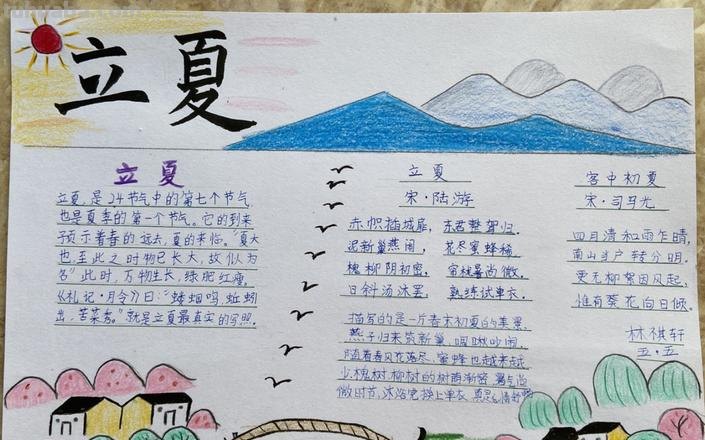 tuhuabao.com
立夏
立夏
立夏,是24节气中的第七个节气,
也是夏季的第一个节气。它的到来
预示着春的远去,夏的来临。"夏大
也,至此之时物已长大,故以为
名"此时,万物生长,绿肥红瘦。
《礼记·月令》曰:"蝼蝈鸣,蚯蚓
出,苦菜秀。"就是立夏最真实的写照。
立夏
宋·陆游
赤帜插城扉,东君整驾归。
泥新巢燕闹,花尽蜜蜂稀。
槐柳阴初密,帘栊暑尚微。
日斜汤沐罢,熟练试单衣。
描写的是一片春末初夏的美景,
燕子归来筑新巢,啁啾吵闹,
随着春风花落尽,蜜蜂也越来越
少,槐树、柳树的树荫渐密,暑气尚
微时节,沐浴完换上单衣,
客中初夏
宋·司马光
四月清和雨乍晴,
南山当户转分明。
更无柳絮因风起,
惟有葵花向日倾。
林祺轩
五·五